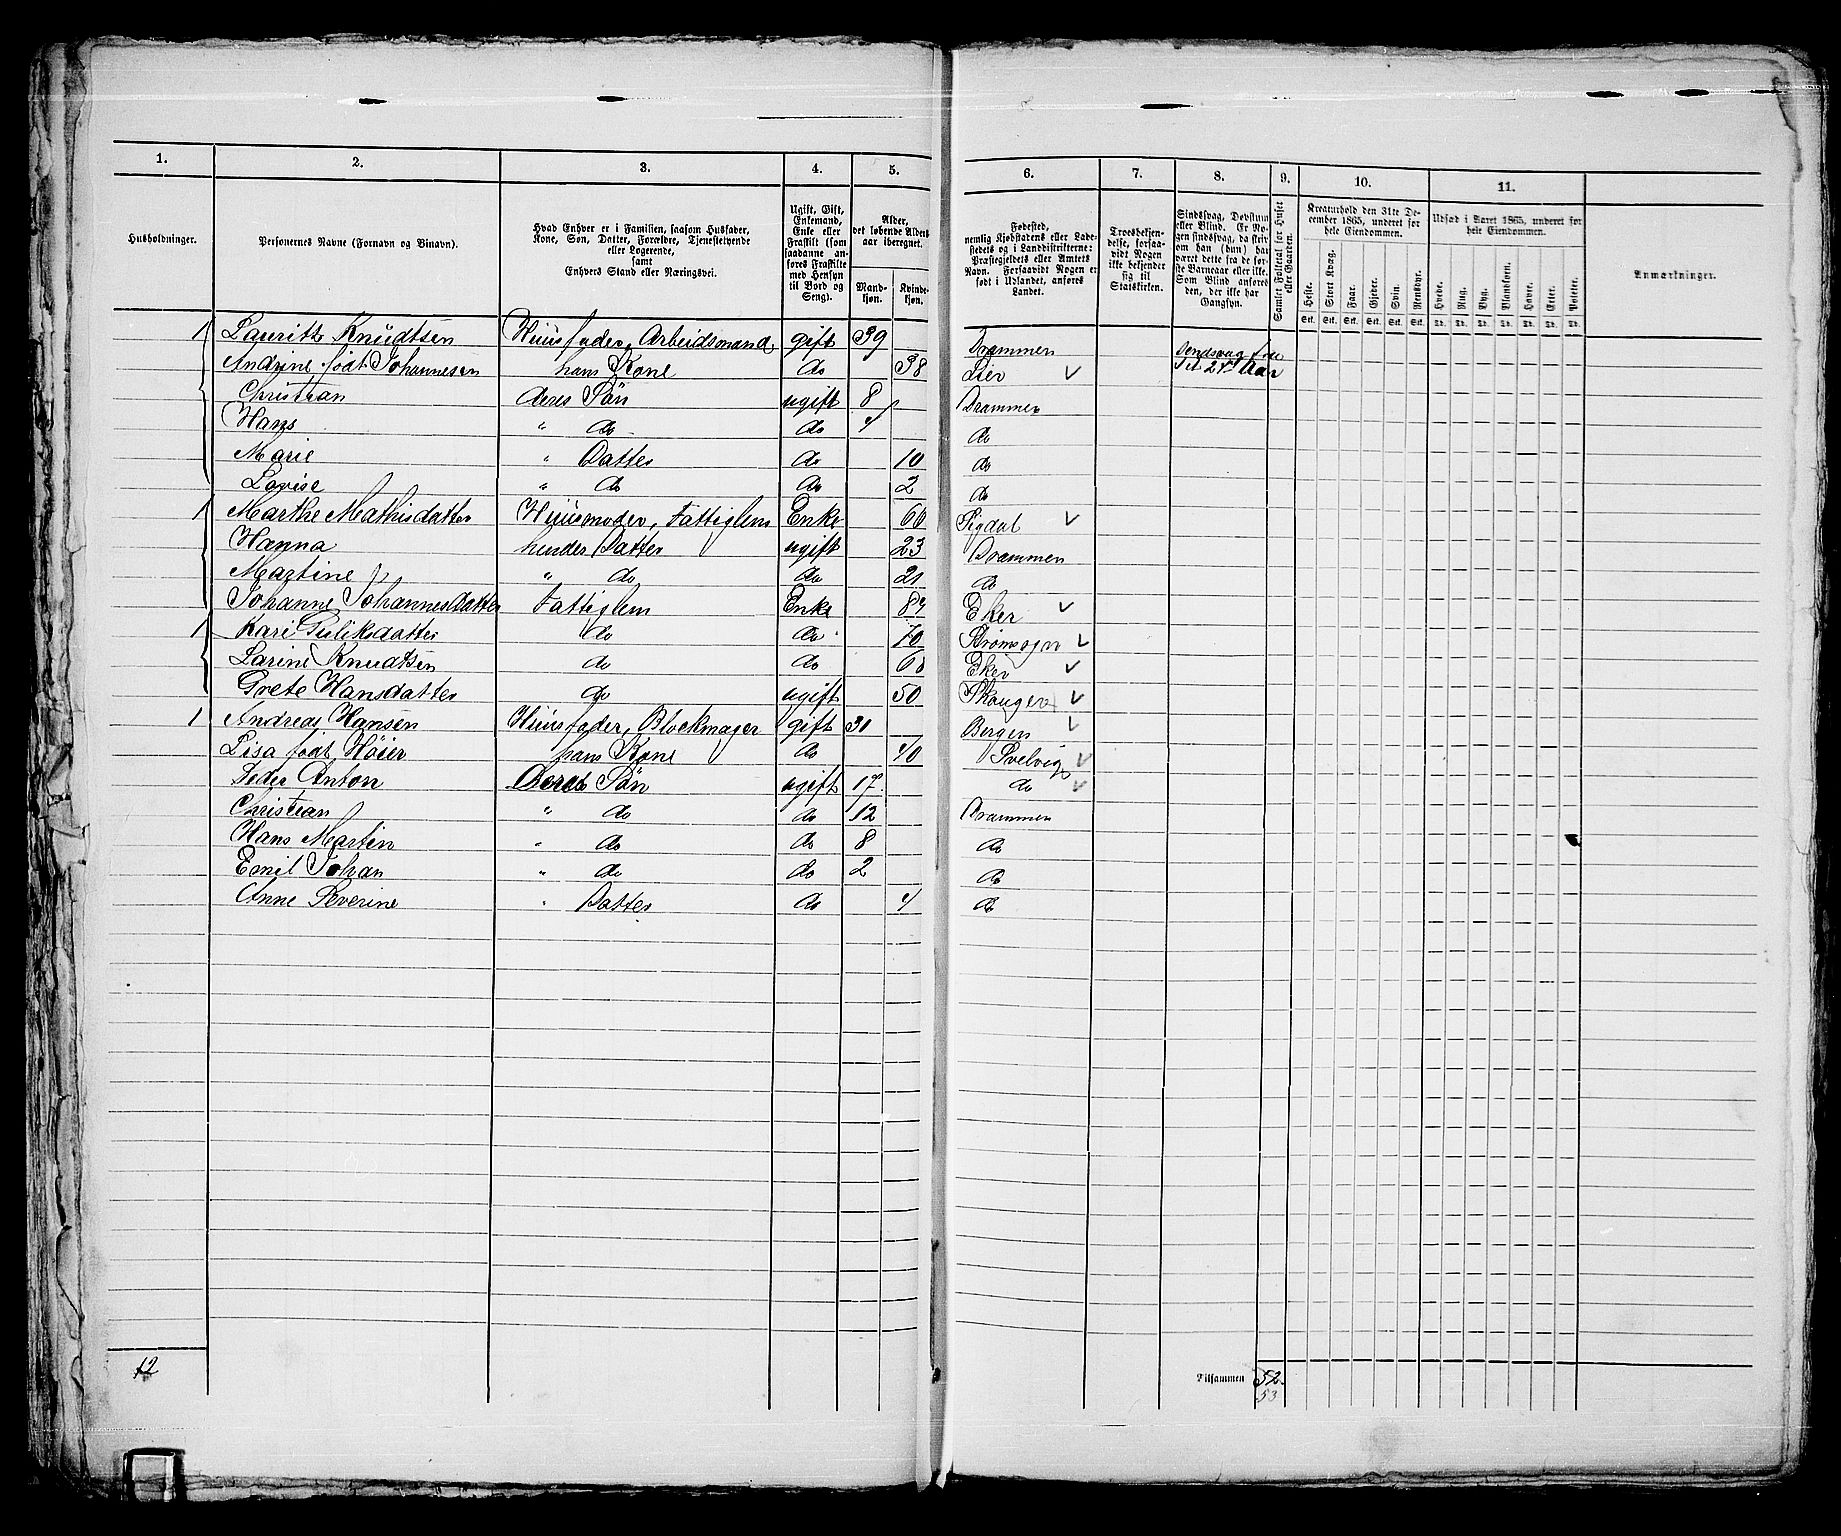 1. 2. 3. 4. 5. 6. 7. 8. 9. 10. 11.
Husholdninger.
Personernes Navne (Fornavn og Binavn).
Hvad Enhver er i Familien, saasom Husfader, Kone, Søn, Datter, Forældre, Tjenestetyende eller Logerende, samt Enhvers Stand eller Næringsvei.
Ugift, Gift, Enkemand, Enke eller Fraskilt (som saadanne anføres Fraskilte med Hensyn til Bord og Seng).
Alder, det løbende Aldersaar iberegnet.
Mandkjøn. Kvindekjøn.
Fødested, nemlig Kjøbstadens eller Ladestedets og i Landdistrikterne: Præstegjeldets eller Amtets Navn. Forsaavidt Nogen er født i Udlandet, anføres Landet.
Troesbekjendelse, forsaavidt Nogen ikke bekjender sig til Statskirken.
Sindssvag, Døvstum eller Blind. Er Nogen sindssvag, da skrives om han (hun) har været dette fra de første Barneaar eller ikke. Som Blind anføres den, der ikke har Gangsyn.
Samlet Folketal for Huset eller Gaarden.
Kreaturhold den 31te December 1865, underet for hele Eiendommen.
Heste. Stort Kvæg. Faar. Gjeder. Svin. Rensdyr.
Stk. Stk. Stk. Stk. Stk. Stk.
Udsæd i Aaret 1865, underet for hele Eiendommen.
Hvede. Rug. Byg. Blandkorn. Havre. Erter. Poteter.
Anmærkninger.
1 Lauritz Knudtsen Huusfader, Arbeidsmand gift 39 Drammen
Andrine født Johannesen hans Kone do 38 Lier Til 21 Aar
Christian deres Søn ugift 8 Drammen
Hans " do do 4 do
Marie " Datter do 10 do
Lovise " do do 2 do
1 Marthe Mathisdatter Huusmoder, Fattiglem Enke 66 Sigdal
Hanna hendes Datter ugift 23 Drammen
Martine " do do 21 do
Johanne Johannesdatter Fattiglem Enke 84 Eker
1 Kari Guliksdatter do do 70
Larine Knudtsen do do Eker
Grete Hansdatter do ugift 50 Skouger
1 Andreas Hansen Huusfader, Blockmager gift 30 Bergen
Lisa født Høier hans Kone do 40 Svelvig
Peder Anton Deres Søn ugift 17 do
Christian " do do 12 Drammen
Hans Martin " do do 8 do
Emil Johan " do do 2 do
Anne Severine " Datter do 4 do
12
Tilsammen 52
53